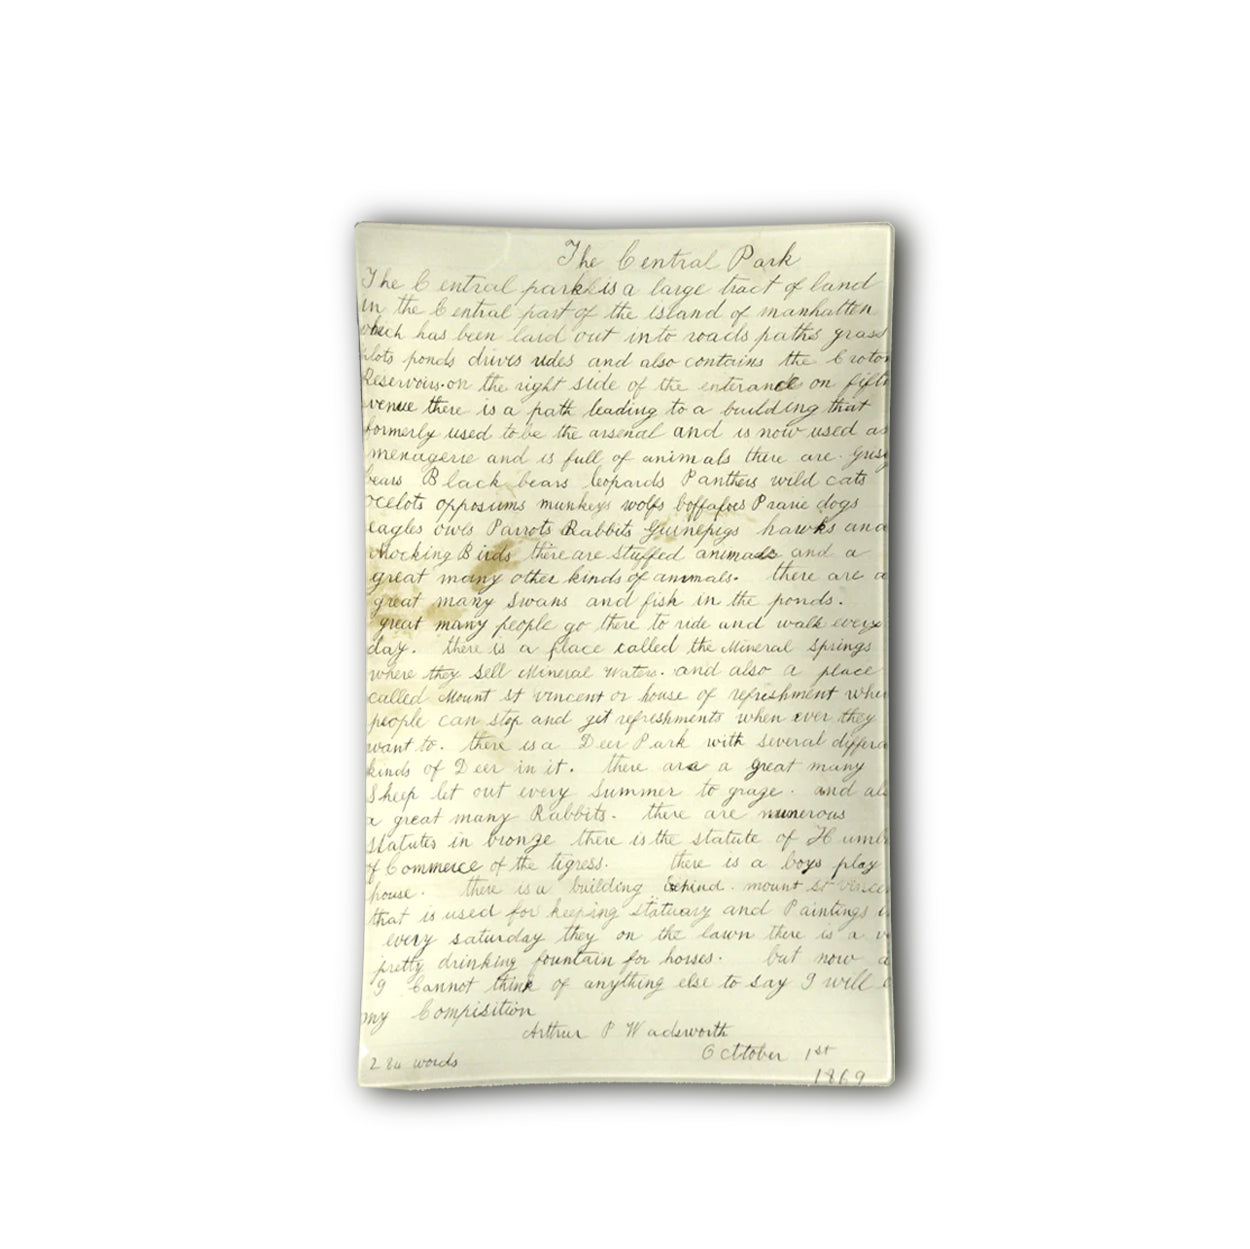 The Central Park
The Central park is a large tract of land
in the Central part of the island of manhatten
which has been laid out into roads paths grass
plots ponds drives rides and also contains the Croton
Reservoirs. on the right side of the enterance on fifth
avenue there is a path leading to a building that
formerly used to be the arsenal and is now used as
menagerie and is full of animals there are. Grisy
bears Black bears leopards Panthers wild cats
ocelots opposiums munkeys wolfs boffaloes Prarie dogs
eagles owls Parrots Rabbits Guinepigs hawks and
Mocking Birds there are stuffed animals and a
great many other kinds of animals. there are a
great many Swans and fish in the ponds.
great many people go there to ride and walk every
day. there is a place called the Mineral Springs
where they sell Mineral Waters. and also a place
called Mount St Vincent or house of refreshment wher
people can stop and get refreshments when ever they
want to. there is a Deer Park with several differa
kinds of Deer in it. there are a great many
Sheep let out every Summer to graze. and als
a great many Rabbits. there are numerous
statutes in bronze there is the statute of Humbo
of Commerce of the tigress. there is a boys play
house. there is a building behind. mount st vincen
that is used for keeping statuary and Paintings i
every saturday they on the lawn there is a v
pretty drinking fountain for horses. but now a
I Cannot think of anything else to say I will c
my Compisition
Arthur P Wadsworth
Octtober 1st
284 words
1869